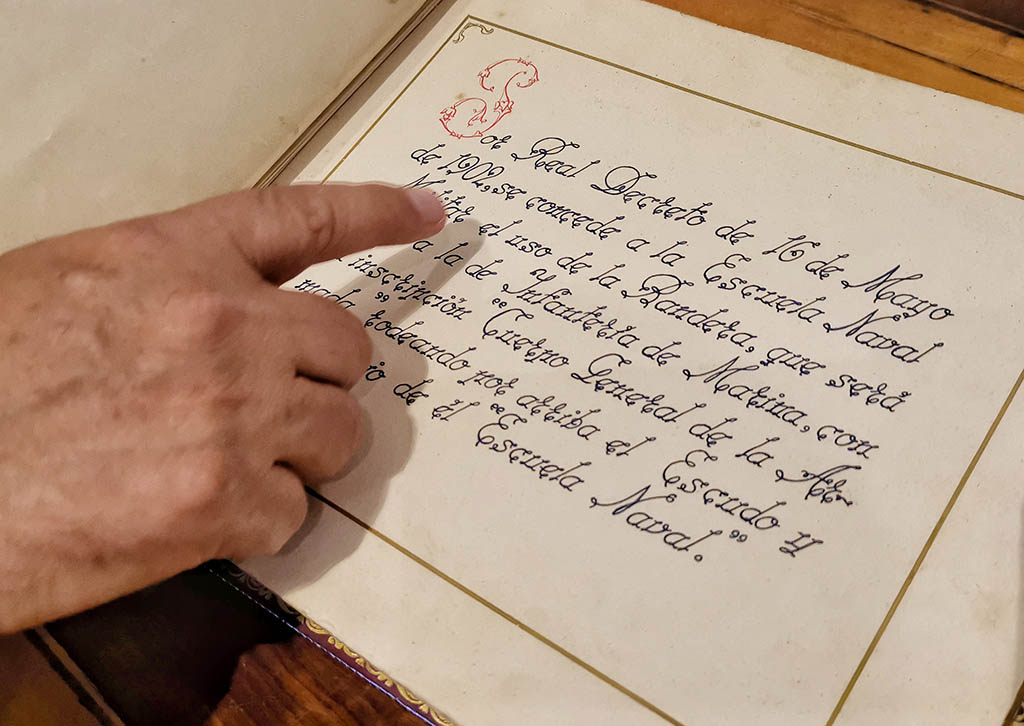 Por Real Decreto de 16 de Mayo
de 1902, se concede a la Escuela Naval
Militar el uso de la Bandera, que será
a la de Ynfantería de Marina, con
inscripción “Cuerpo General de la Ar-
mada” rodeando por arriba el Escudo y
de él “Escuela Naval”.